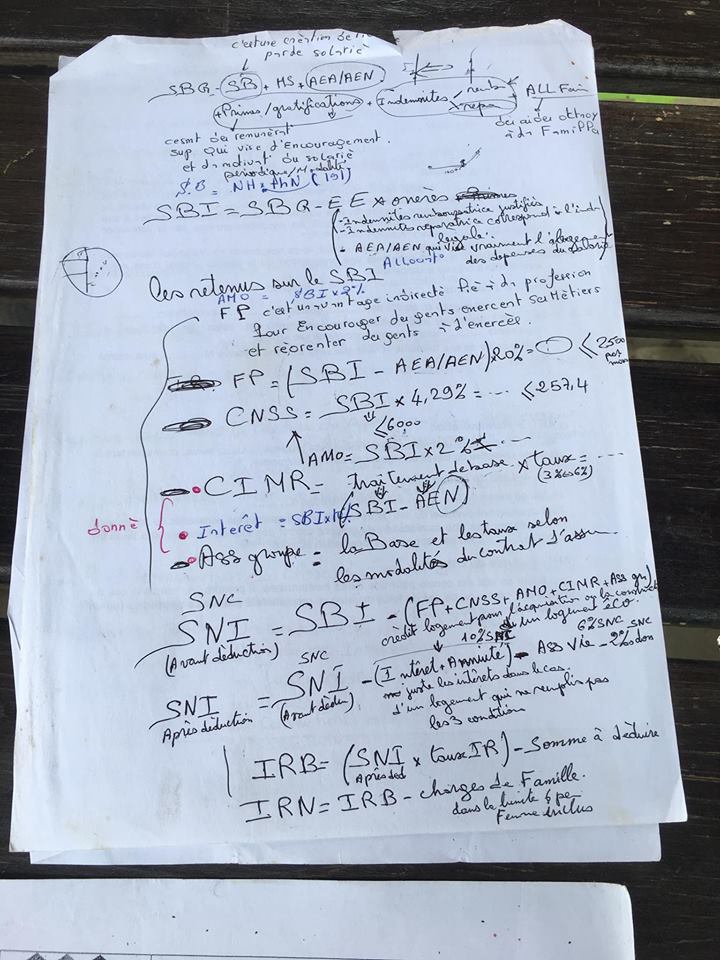 c'est une création de
par de solarié
SBG = SB + HS + AEA/AEN
+ Primes/gratifications + Indemnites remb repa + ALL Fam
des aides octroy
à da FamiPPa
cesmt des remunerat
sup Qui vise d'Encouragement
et da motivat du solarié
périodique
S.B = NH x thN (191)
SBI = SBG - EE exonerès
- Indemnités remboursatrica justifiés
- Indemnités reparatrica correspond à l'indm
legale.
- AEA/AEN qui vise vraiment l'allegement
des depenses du solarié
les retenus sur le SBI
AMO = SBI x 2%
FP c'est un avantage indirecté lié à da profession
Pour Encourager des gents exercent ses Mètiers
et réorenter des gents à d'enercée.
FP = (SBI - AEA/AEN) x 20% = ≤ 2500
par mois
CNSS = SBI x 4,29% = ... ≤ 257,4
≤ 6000
AMO = SBI x 2% ...
• CIMR = traitement de base x taux = ...
(3% à 6%)
(SBI - AEN)
donné
• Interêt = SBI x
• Ass groupe = la Base et les taux selon
les modalités du contrat d'assu
SNC
SNI = SBI - (FP + CNSS + AMO + CIMR + Ass gr)
(Avant déduction)
crédit logement pour l'acquisition ou la construct
d'un logement ECO.
10% SNI
6% SNC
SNC
SNC
SNI = SNI - (Intéret + Annuité) - Ass Vie - 2% don
Après déduction (Avant déduc)
juste les intérêts dans le cas
d'un logement qui ne remplis pas
les 3 condition
IRB = (SNI x taux IR) - Somme à déduire
Après ded
IRN = IRB - charges de Famille.
dans la limite 6 per
Femme inclus